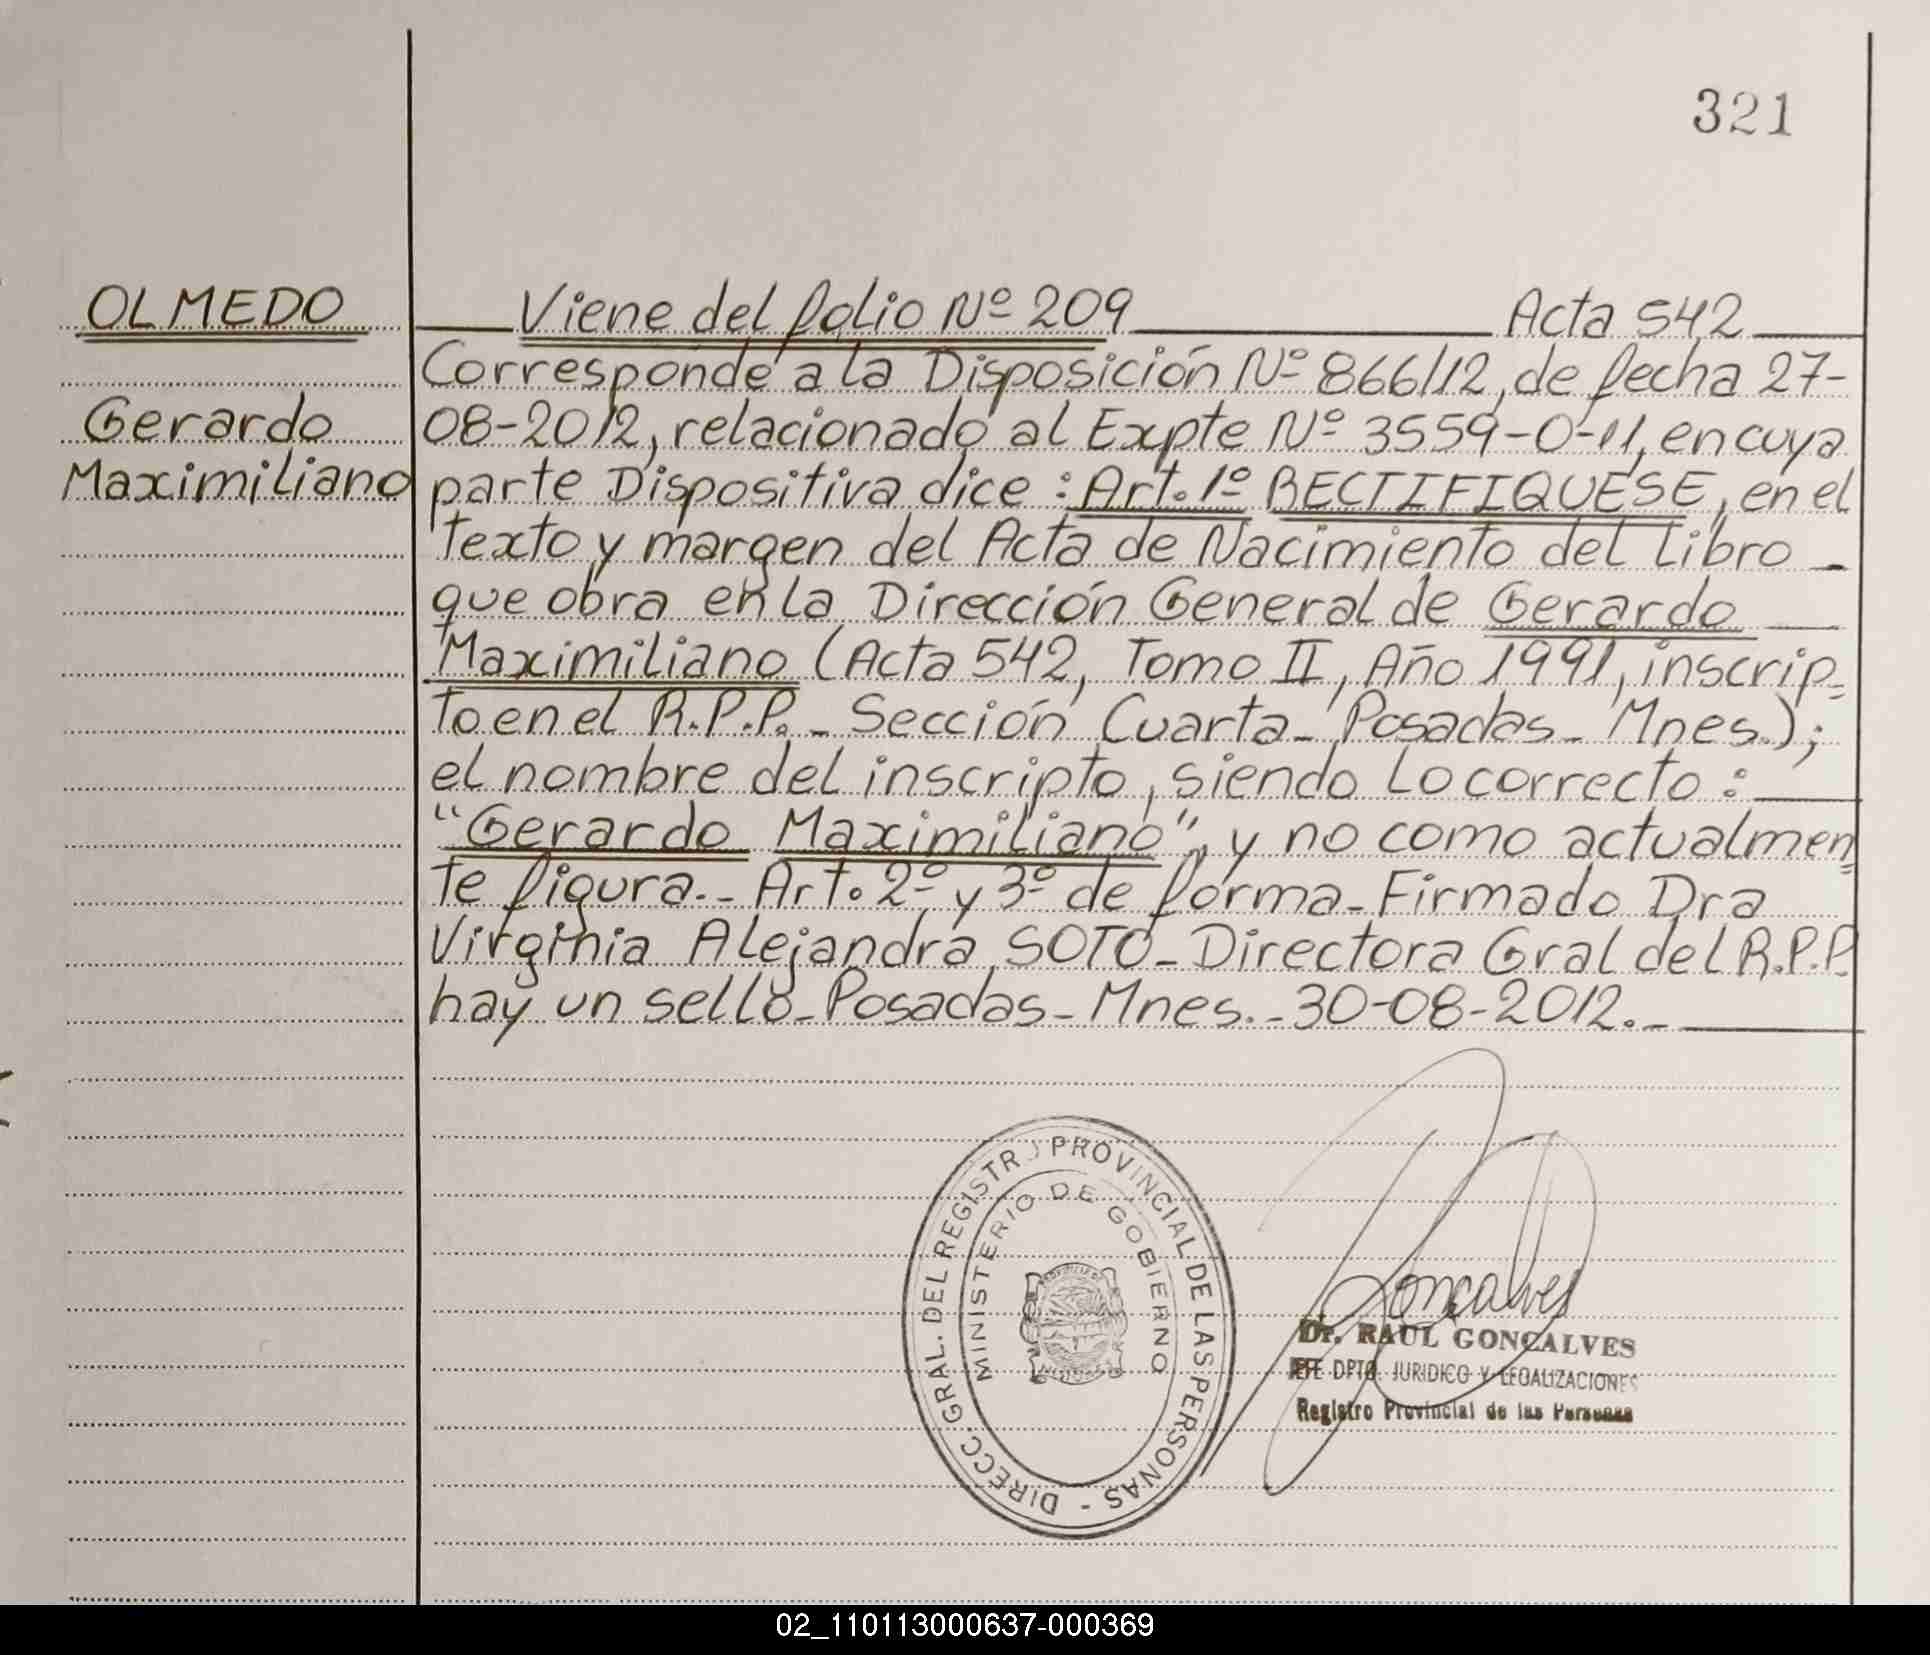 321
OLMEDO
Gerardo
Maximiliano
Viene del folio Nº 209 Acta 542
Corresponde a la Disposición Nº 866/12, de fecha 27-
08-2012, relacionado al Expte Nº 3559-O-11, en cuya
parte Dispositiva dice: Art. 1º RECTIFIQUESE, en el
Texto y margen del Acta de Nacimiento del Libro _
que obra en la Dirección General de Gerardo
Maximiliano (Acta 542, Tomo II, Año 1991, inscrip=
to en el R.P.P. - Sección Cuarta - Posadas - Mnes.);
el nombre del inscripto, siendo Lo correcto:
"Gerardo Maximiliano", y no como actualmen=
te figura.- Art. 2º y 3º de forma - Firmado Dra
Virginia Alejandra SOTO - Directora Gral del R.P.P.
hay un sello - Posadas - Mnes. - 30-08-2012.-
DIRECC. GRAL. DEL REGISTRO PROVINCIAL DE LAS PERSONAS -
MINISTERIO DE GOBIERNO
Goncalves
Dr. RAUL GONCALVES
JEFE DPTO. JURIDICO Y LEGALIZACIONES
Registro Provincial de las Personas
02_110113000637-000369